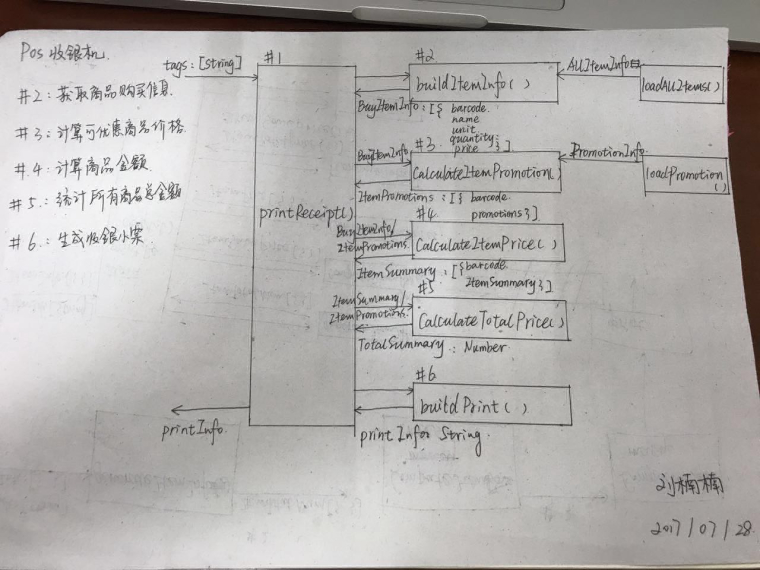 Pos 收银机
#2: 获取商品购买信息
#3: 计算可优惠商品价格
#4: 计算商品金额
#5: 统计所有商品总金额
#6: 生成收银小票
tags: [String]
#1
printReceipt()
printInfo
#2
buildItemInfo()
AllItemInfo
loadAllItems()
BuyItemInfo: [{ barcode
name
unit
quantity
price }]
BuyItemInfo
#3
CalculateItemPromotion()
PromotionInfo
loadPromotion
()
ItemPromotions: [{ barcode
promotions }]
#4
BuyItemInfo/
ItemPromotions
CalculateItemPrice()
ItemSummary: [{ barcode
ItemSummary }]
#5
ItemSummary/
ItemPromotions
CalculateTotalPrice()
TotalSummary: Number
#6
buildPrint()
printInfo: String
刘楠楠
2017/07/28